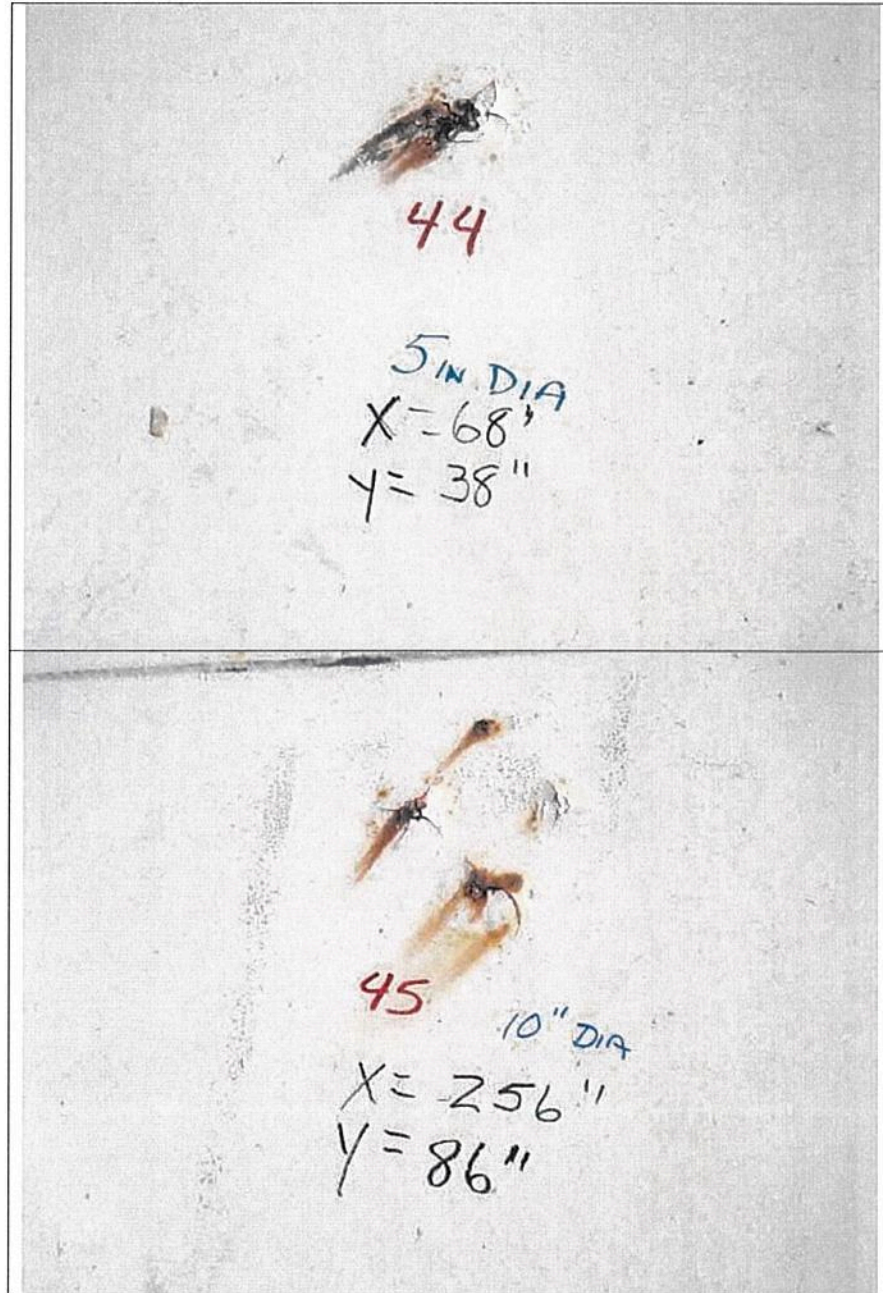 44
5 IN DIA
X=68"
y=38"
45
10" DIA
X=256"
y=86"